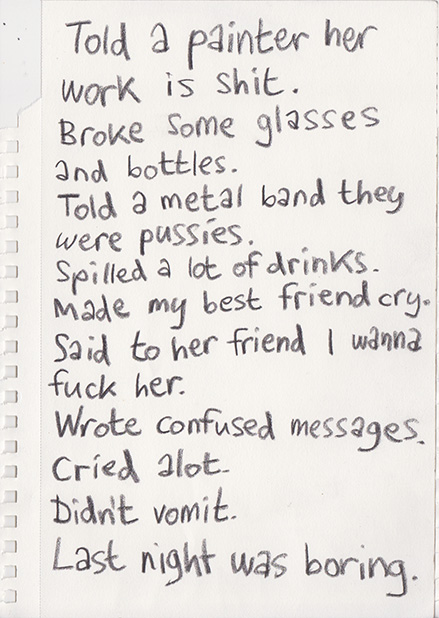 Told a painter her
work is shit.
Broke some glasses
and bottles.
Told a metal band they
were pussies.
Spilled a lot of drinks.
Made my best friend cry.
Said to her friend I wanna
fuck her.
Wrote confused messages.
Cried alot.
Didn't vomit.
Last night was boring.